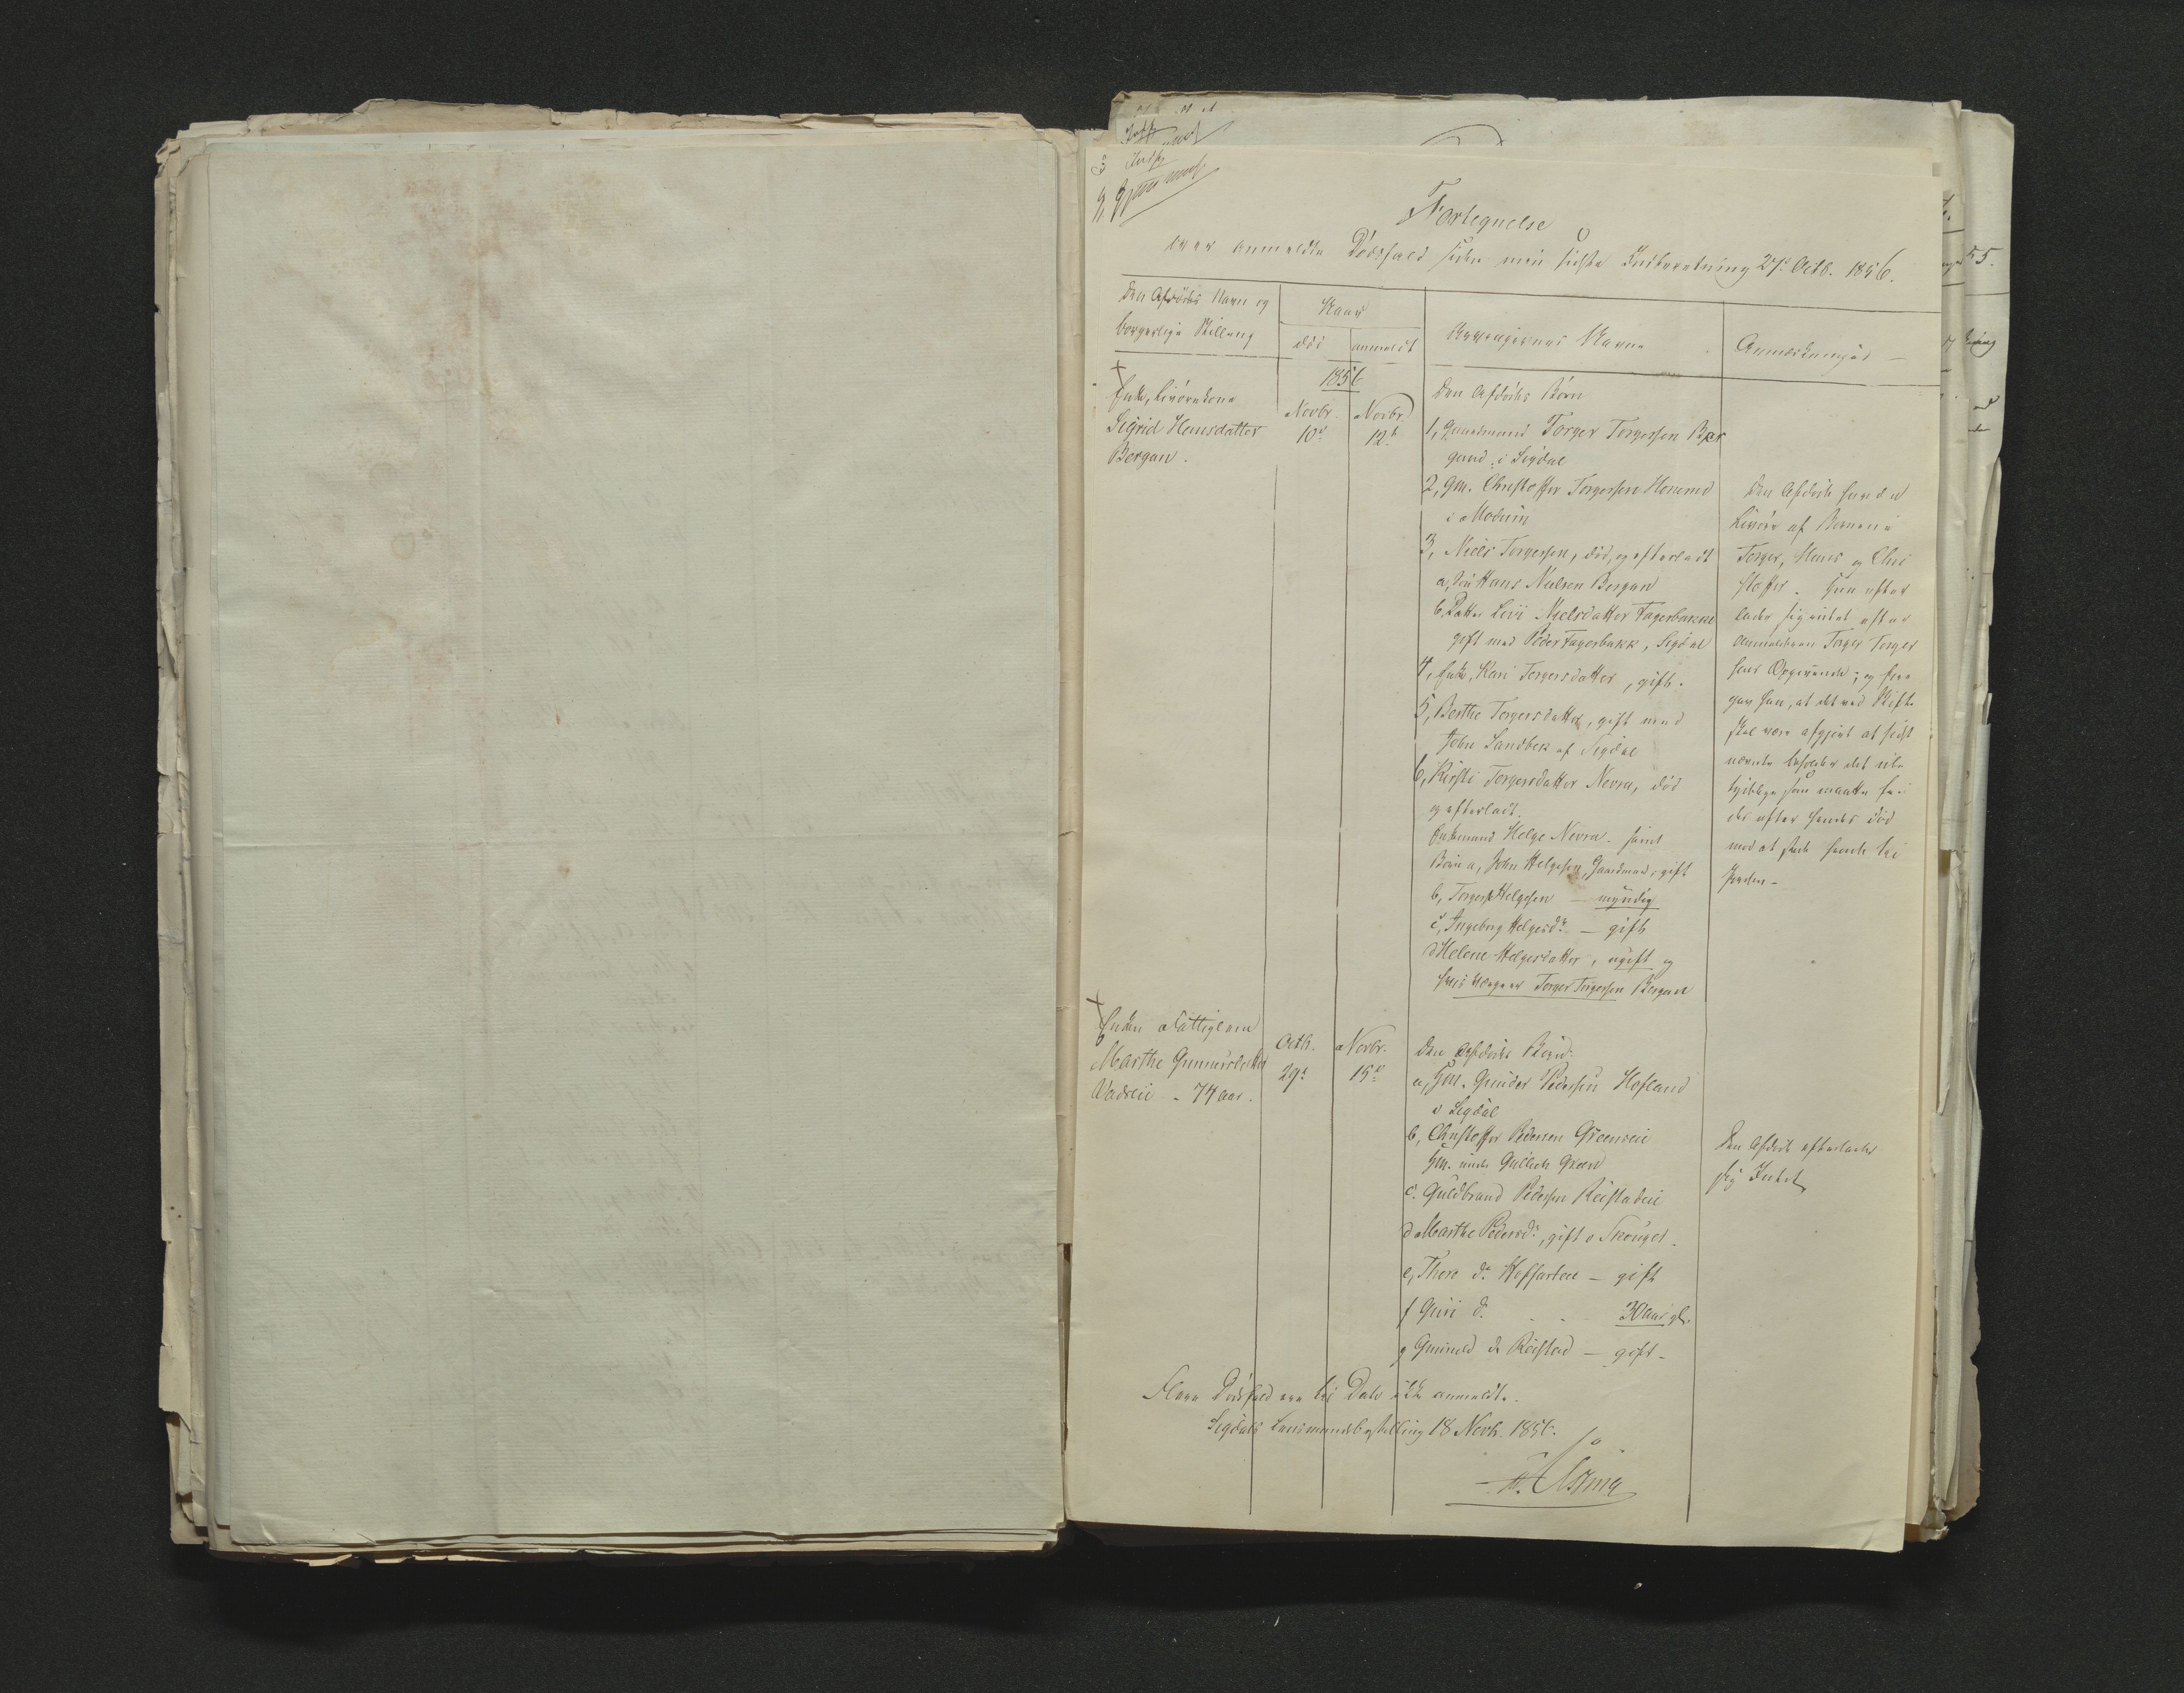 Fortegnelse
over anmeldte Dødsfald siden min sidste Indberetning 27d Octb. 1856.
Den Afdødes Navn og
borgerlige Stilling
Naar
død
anmeldt
Arvingernes Navne
Anmærkninger
1856
Enke, Livørekone
Sigrid Hansdatter
Bergan.
Novbr.
10d
Novbr.
12t
Den Afdødes Børn
1, Gaardmand Torger Torgersen Ber
gand i Sigdal
2, Gm. Christoffer Torgersen
i Modum
3, Niels Torgersen, død, og efterladt
a, Søn Hans Nielsen Bergan
b, Datter Livi Nielsdatter Fagerbakke
gift med Peder Fagerbakk, Sigdal
4, Enke, Kari Torgersdatter, gift.
5, Berthe Torgersdatter, gift med
John Sandbek af Sigdal
6, Kirsti Torgersdatter Nevra, død
og efterladt.
Enkemand Helge Nevra. samt
Børn a, John Helgesen, Gaardmand, gift
b, Torger Helgesen — myndig
c, Ingeborg Helgesdr. — gift
d Helene Helgesdatter, ugift og
hvis Værge er Torger Torgersen Bergan
Den Afdøde havde
Livøre af Børnene
Torger, Hans og Chri
stoffer. Hun efter
lader sig intet efter
Anmelderen Torger Torger
sens Opgivende; og fore
gav han, at det ved Skifte
skal være afgjort at sidst
nævnte beholder det ube
tydelige som maatte fin
des efter hendes Død
mod at hende til
Jorden -
Enken Fattiglem
Marthe Gunnersdatter
Vadseie - 74 aar.
Octb.
29d
Novbr.
15d
Den Afdødes Børn:
a, Hm. Gunder Pedersen Hofland
i Sigdal
b, Christoffer Pedersen Greenseie
Hm. under Gulbek Green
c. Guldbrand Pedersen Reistadeie
d Marthe Pedersdr., gift i Skouger.
e, Thore do. — gift
f Guri do. 30 aar gl.
g Gunild do Reistad — gift -
Den Afdøde efterlader
sig Intet
Flere Dødsfald ere til Dato ikke anmeldte.
Sigdals Lensmandsbestilling 18 Novb. 1856.